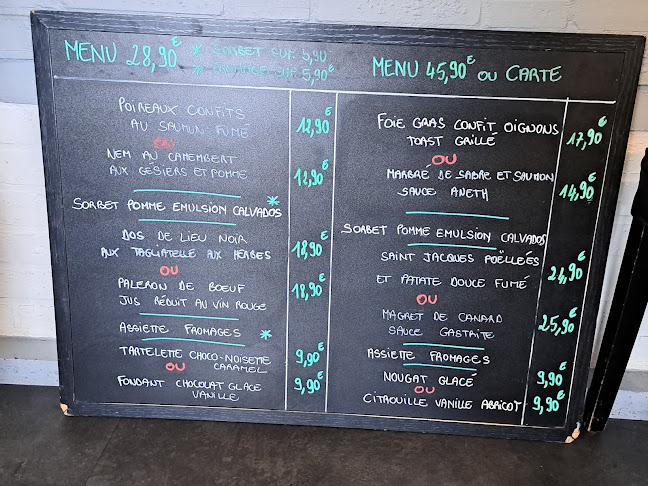 MENU 28,90€ * SORBET SUP 5,90
* FROMAGE SUP 5,90€
POIREAUX CONFITS
AU SAUMON FUMÉ 12,90€
OU
NEM AU CAMEMBERT
AUX GÉSIERS ET POMME 12,90€
SORBET POMME EMULSION CALVADOS *
DOS DE LIEU NOIR
AUX TAGLIATELLE AUX HERBES 18,90€
OU
PALERON DE BOEUF 18,90€
JUS RÉDUIT AU VIN ROUGE
ASSIETTE FROMAGES *
TARTELETTE CHOCO-NOISETTE 9,90€
OU CARAMEL
FONDANT CHOCOLAT GLACE 9,90€
VANILLE
MENU 45,90€ OU CARTE
FOIE GRAS CONFIT OIGNONS 17,90€
TOAST GRILLÉ
OU
MARBRÉ DE SABRE ET SAUMON 14,90€
SAUCE ANETH
SORBET POMME EMULSION CALVADOS
SAINT JACQUES POËLLÉES 24,90€
ET PATATE DOUCE FUMÉ
OU
MAGRET DE CANARD 25,90€
SAUCE GASTRITE
ASSIETTE FROMAGES
NOUGAT GLACÉ 9,90€
OU
CITROUILLE VANILLE ABRICOT 9,90€